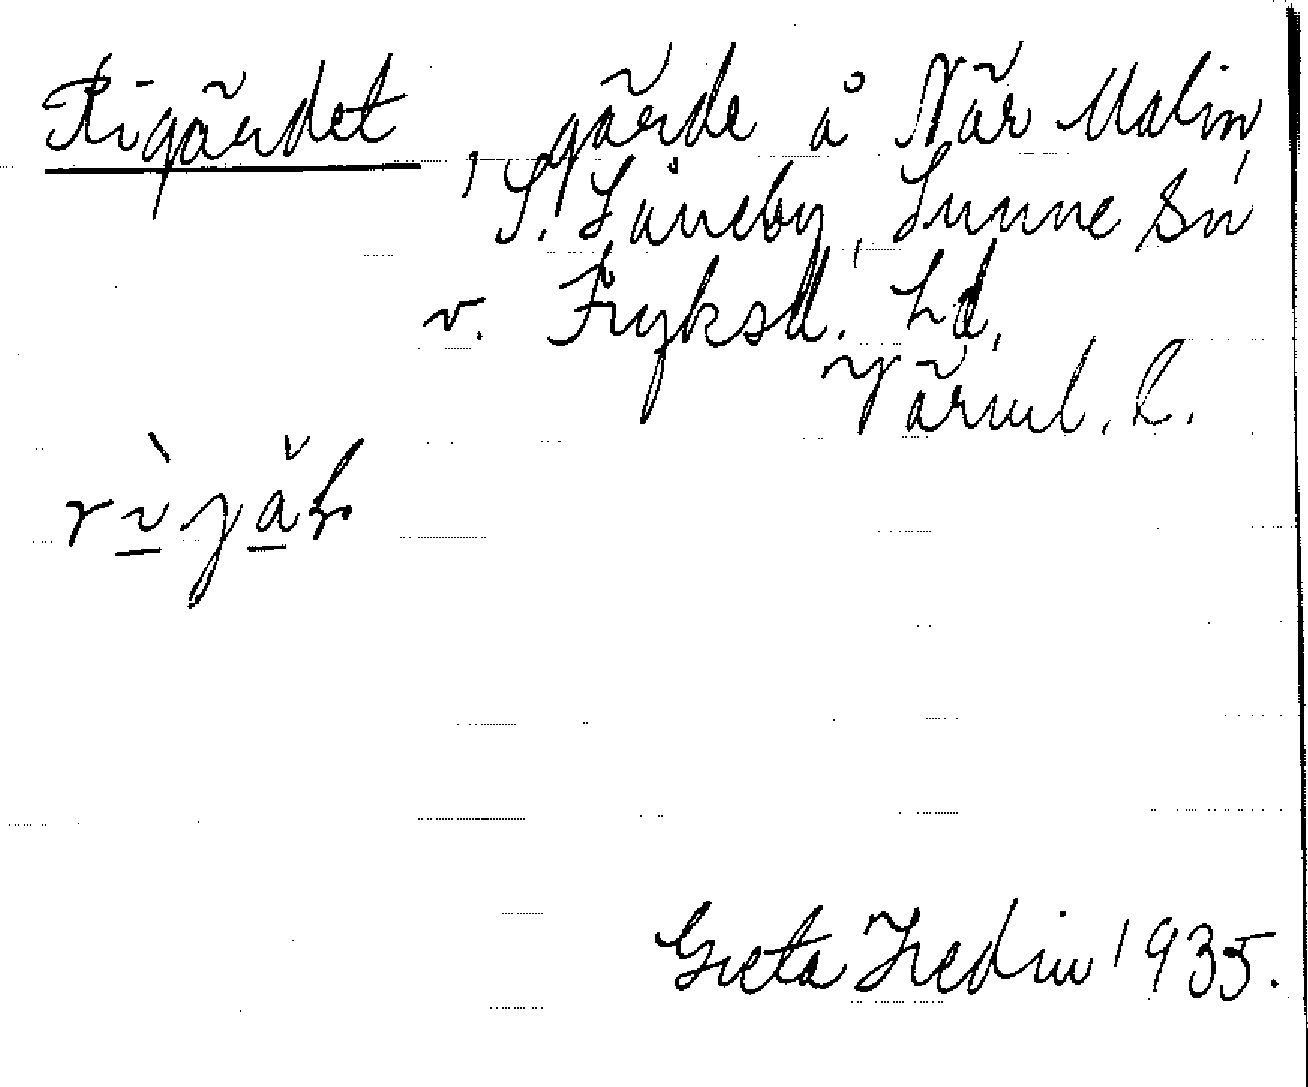 Rigärdet, gärde å När Malin,
S. Låneby, Sunne sn
v. Fryksd. hd,
Värml. l.
rìjäḷ
Greta Hedin 1935.